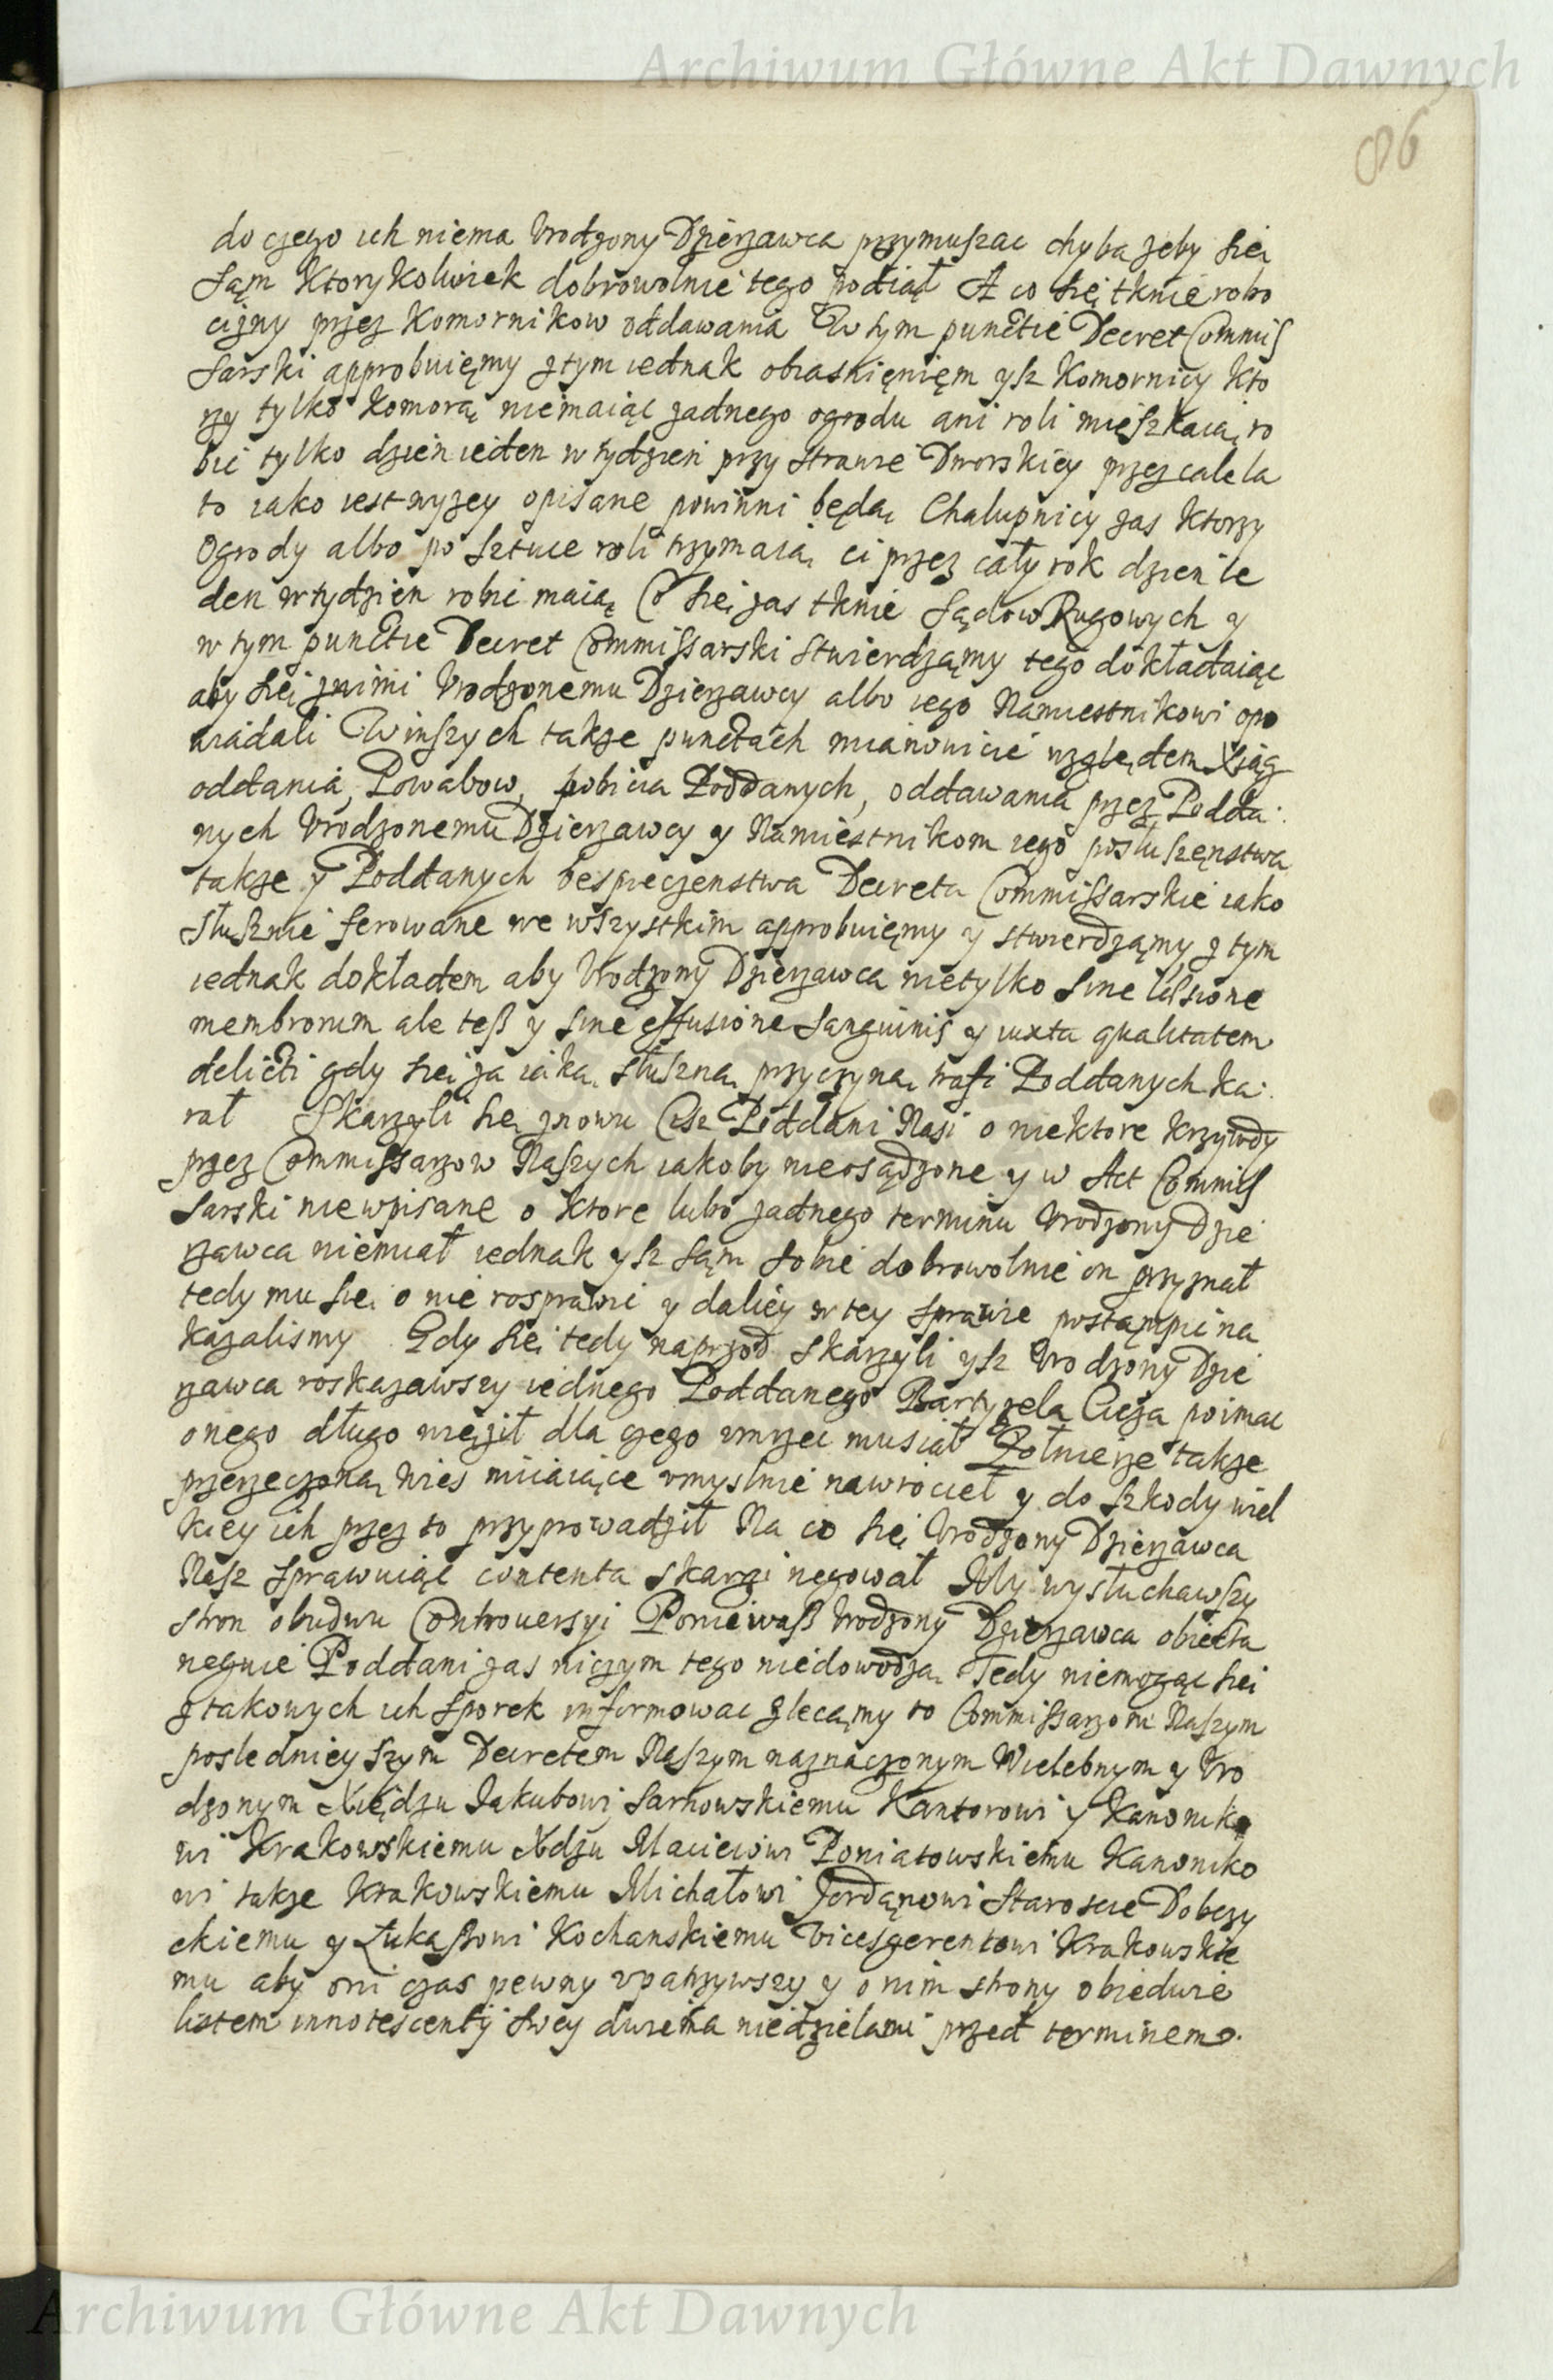 Archiwum Główne Akt Dawnych
86
do czego ich niema Vrodzony Dzierzawca przymuszac chyba zeby się
sąm ktorykolwiek dobrowolnie tego podiął A co się tknie robo
cizny przez Komornikow oddawania W tym punctie Decret Commis
sarski approbuięmy z tym iednak obiasnięnięm ysz Komornicy kto
rzy tylko komorą niemaiąc zadnego ogrodu ani roli mięszkaią ro
bic tylko dzien ieden w tydzien przy strawie Dworskiey przez cale la
to iako iest wyzey opisane powinni będą Chalupnicy zas ktorzy
Ogrody albo po sztuce roli trzymaią ci przez cały rok dzien ie
den w tydzien robic maią Co się zas tknie Sądow Rugowych y
w tym punctie Decret Commissarski stwierdząmy tego dokładaiąc
aby się z nimi Vrodzonemu Dzierzawcy albo iego Namiestnikowi opo
wiadali W inszych takze punctach mianowicie względem Xiąg
oddania, Powabow, pobicia Poddanych, oddawania przez Podda:
nych Vrodzonemu Dzierzawcy y Namiestnikom iego posłuszęnstwa
takze y Poddanych bespieczenstwa Decreta Commissarskie iako
słusznie ferowane we wszystkim approbuięmy y stwierdząmy z tym
iednak dokładem aby Vrodzony Dzierzawca nietylko sine laesione
membrorum ale teß y sine effusione sanguinis y iuxta qualitatem
delicti gdy się za iaką słuszną przyczyną trafi Poddanych ka:
rał Skarzyli się znowu Ciz Poddani Nasi o niektore krzywdy
przez Commissarzow Naszych iakoby nieosądzone y w Act Commis
sarski niewpisane o ktore lubo zadnego terminu Vrodzony Dzie
rzawca niemiał iednak ysz sąm sobie dobrowolnie on przyznał
tedy mu się o nie rosprawic y daliey w tey sprawie postąmpic na
kazalismy Gdy się tedy naprzod skarzyli ysz Vrodzony Dzie
rzawca roskazawszy iednego Poddanego Bartyzela Cieza poimac
onego długo więził dla czego vmrzec musiał Zołnierze takze
przerzeczoną Wies miiaiące vmyslnie nawrocieł y do szkody wiel
kiey ich przez to przyprowadził Na co się Vrodzony Dzierzawca
Nasz sprawuiąc contenta skargi negował My wysłuchawszy
stron obudwu Controuersyi Ponieważ Vrodzony Dzierzawca obiecta
neguie Poddani zas niczym tego niedowodzą Tedy niemogąc się
z takowych ich sporek informowac zlecąmy to Commissarzom Naszym
posledniey szym Decretem Naszym naznaczonym Wielebnym y Vro
dzonym Xiędzu Jakubowi Sarnowskiemu Kantorowi y Kanoniko
wi Krakowskiemu Xdzu Macieiowi Poniatowskiemu Kanoniko
wi takze Krakowskiemu Michałowi Jordąnowi Staroscie Dobczy
ckiemu y Łukaßowi Kochanskiemu Vicesgerentowi Krakowskie
mu aby oni czas pewny vpatrzywszy y o nim strony obiedwie
listem innotescentÿ swey dwiema niedzielami przed terminem
Archiwum Główne Akt Dawnych